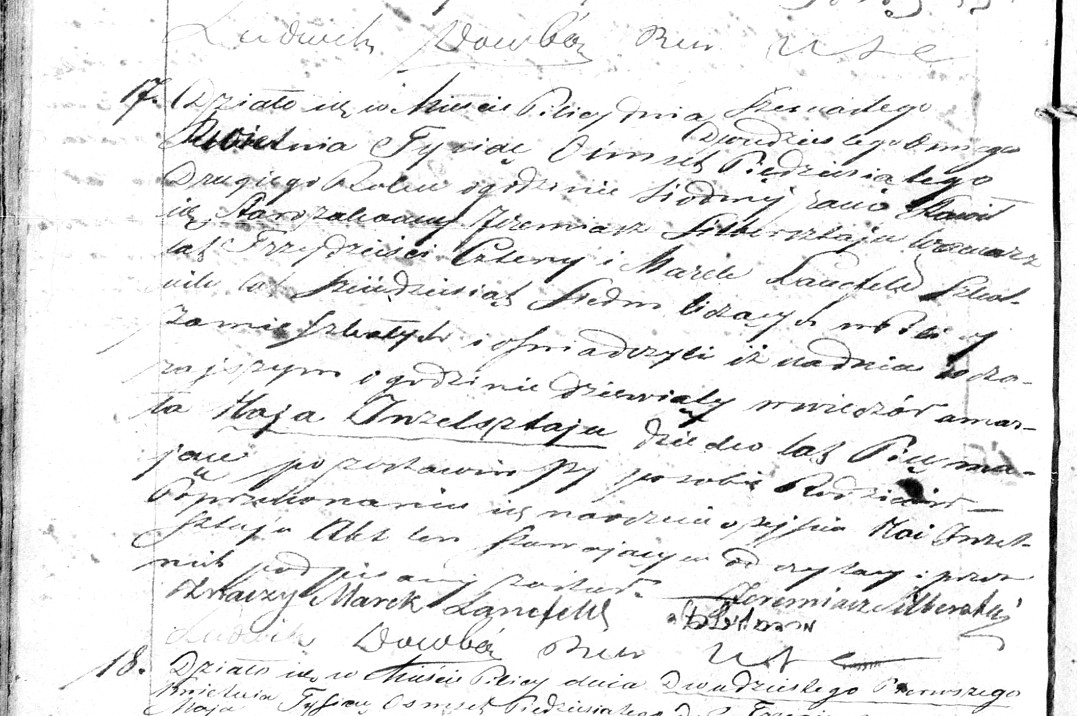 Ludwik Dowbór Bur USC
17. Działo się w Mieście Pilicy dnia Szesnastego
Dwudziestego Osmego
Kwietnia Tysiąc Ośmset Piędziesiątego
Drugiego Roku o godzinie siódmy rano Stawił
się Starozakonny Jeremiasz Silbersztajn
lat Trzydzieści Cztery i Marek Lancfeld Szkol-
nik lat Siedm liczących w tutej
zamieszkałych i oświadczyli iż na dniu wczo-
rajszym o godzinie dziewiąty wieczór umar-
ła Haja Inzelsztajn dziecko lat Pięć ma-
jące pozostawiwszy po sobie Rodziców
Poprzekonaniu się naocznie o zejściu Hai Inzel-
sztajn Akt ten stawającym odczytany i przez
nich podpisany został. Jeremiasz Silbersztaj
Marek Lancfeld
Ludwik Dowbór Bur USC
18. Działo się w Mieście Pilicy dnia Dwudziestego Pierwszego
Kwietnia Tysiąc Osmset Pięдziesiątego
Maja